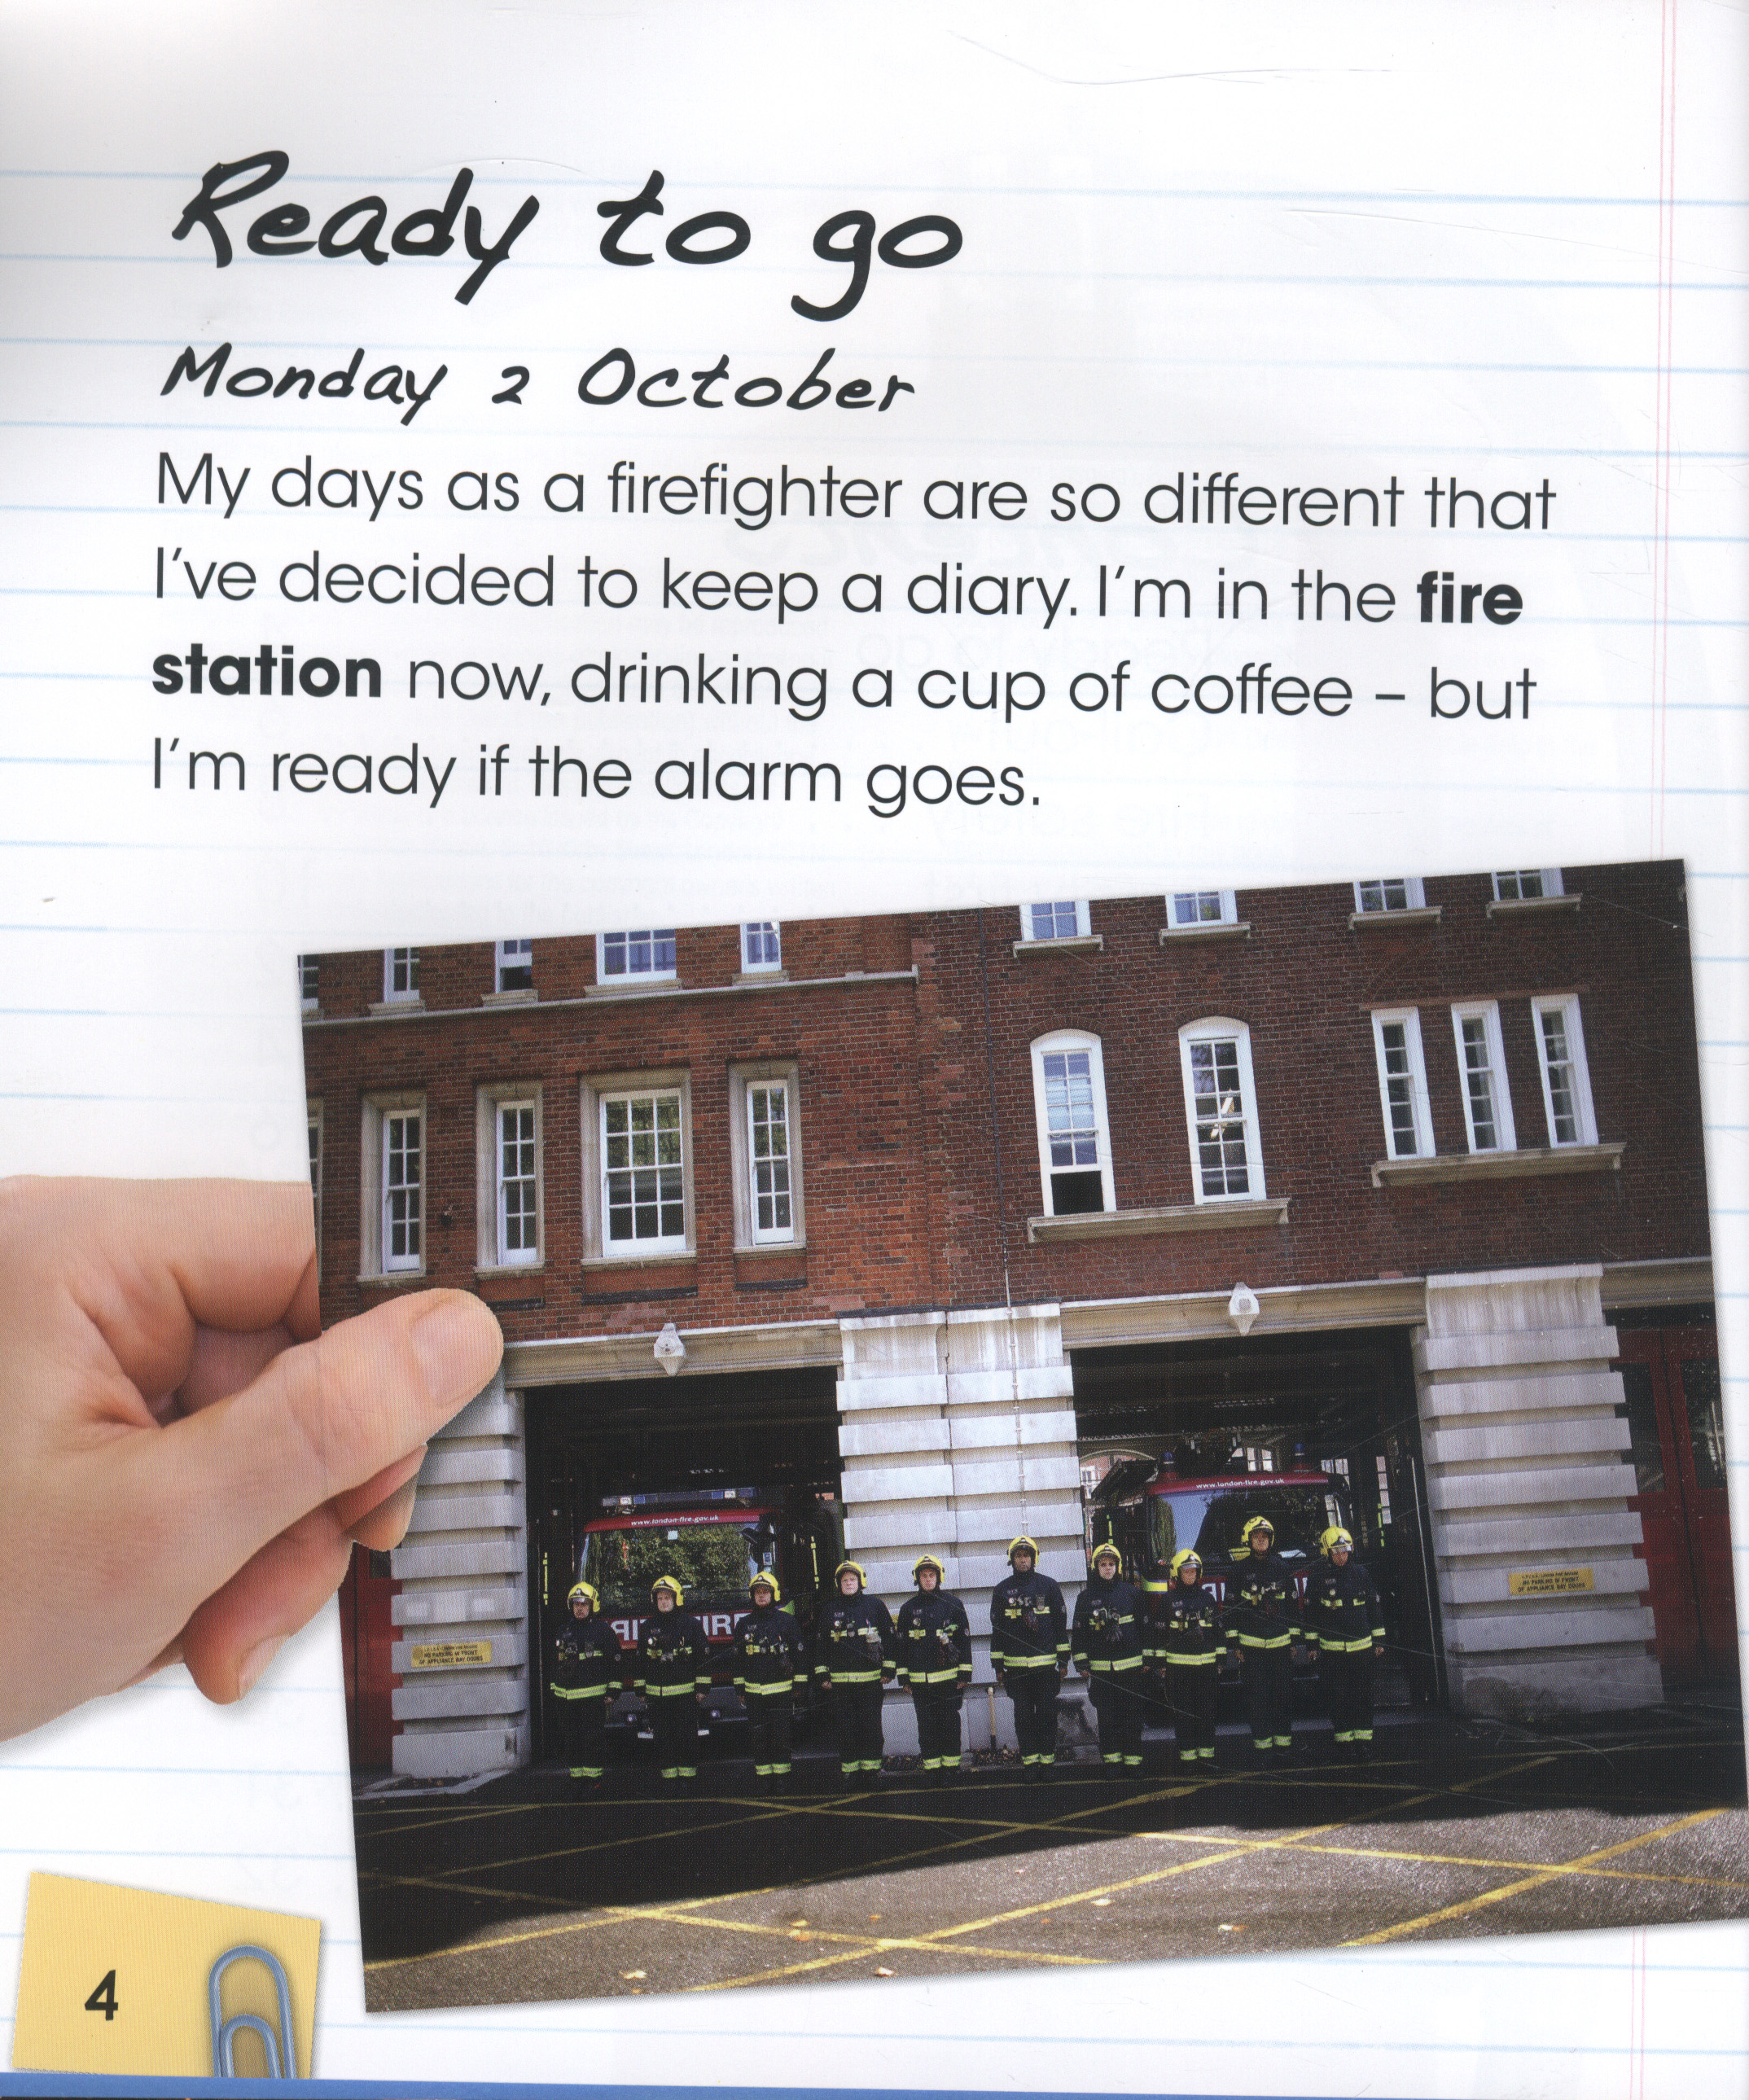 Ready to go
Monday 2 October
My days as a firefighter are so different that
I've decided to keep a diary. I'm in the fire
station now, drinking a cup of coffee – but
I'm ready if the alarm goes.
www.london-fire.gov.uk
www.london-fire.gov.uk
NO PARKING IN FRONT
OF APPLIANCE BAY DOORS
NO PARKING IN FRONT
OF APPLIANCE BAY DOORS
4